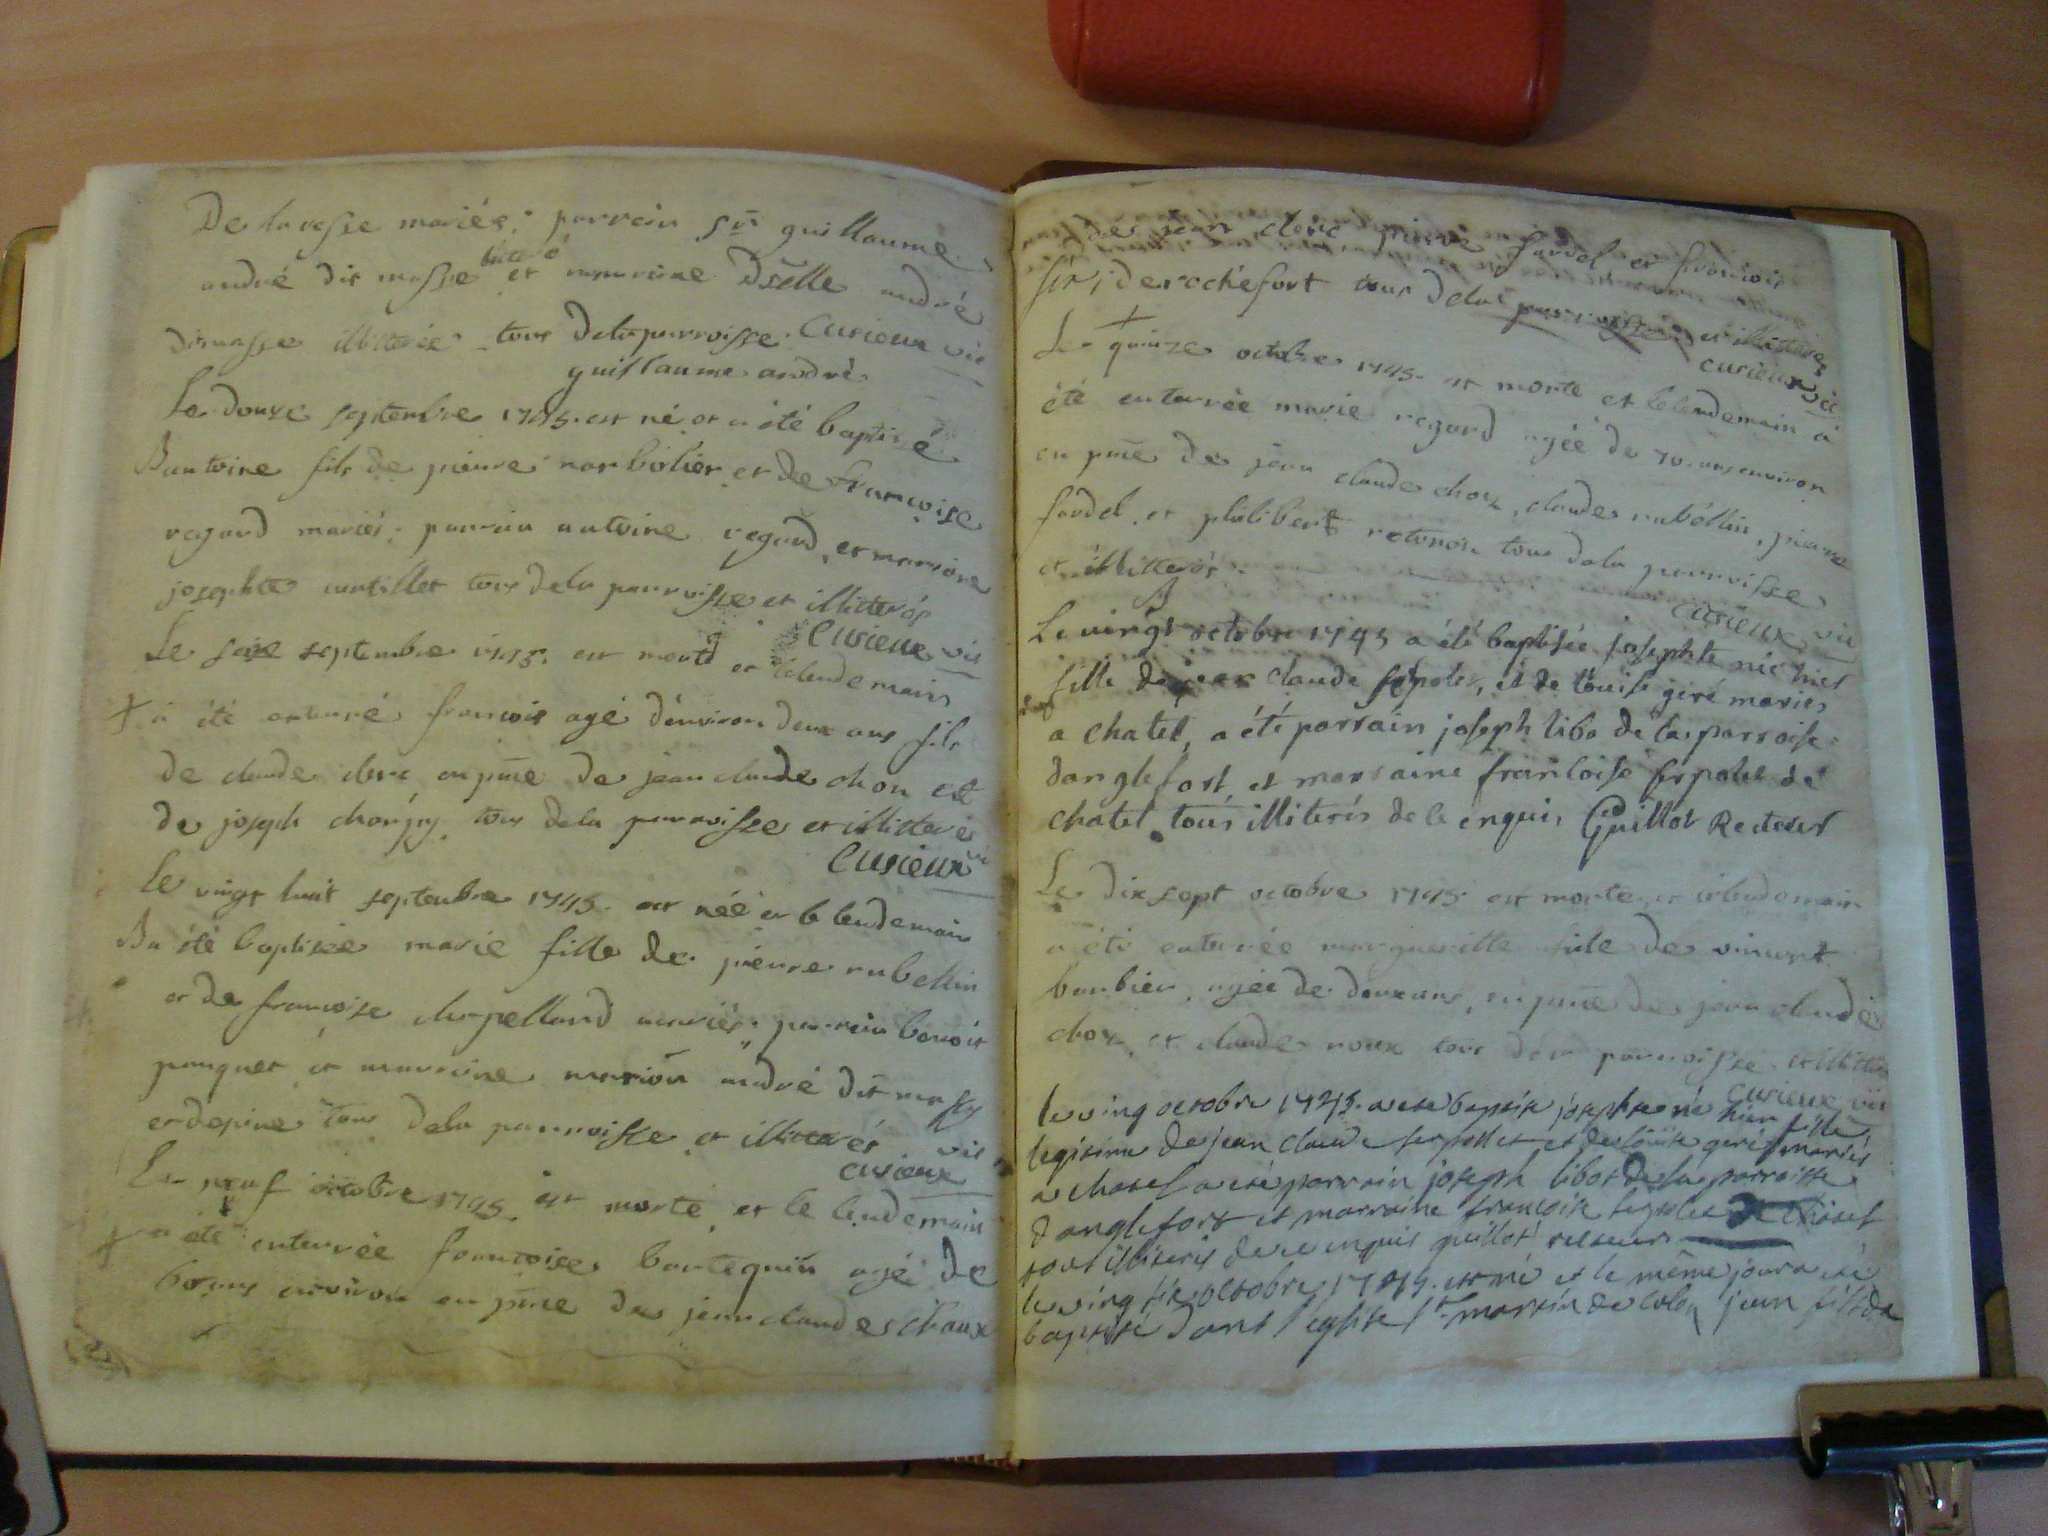 De lavesse mariés; parrain sr guillaume
andré dit masse lettré et marraine Dselle andré
ditmasse illitterée tous dela parroisse. Curieux vic
guillaume andré
Le douze septembre 1745. est né et a été baptisé
B antoine fils de pierre et de francoise
regard mariés; parrain antoine regard et marraine
josephte tous dela parroisse et illitterés
Curieux vic
Le seize septembre 1745. est mort et le lendemain
+ a été enterré francois agé d'environ deux ans fils
de claude clerc en pnce de jean claude chou et
de joseph tous dela parroisse et illitterés
Curieux vi
Le vingt huit septembre 1745. est née et le lendemain
B a été baptisée marie fille de pierre rubellin
et de francoise chapelland mariés; parrain benoit
panquet et marraine marion andré dit massy
tous dela parroisse et illitterés
Curieux vic
Le neuf octobre 1745. est morte et le lendemain
+ a été enterrée francoise agé de
60 ans environ en pnce de jean claude chaux
de jean clerc pierre fardel et francois
de rochefort tous dela parroisse et illitterés
curieux vic
+
Le quinze octobre 1745. est morte et le lendemain a
été enterrée marie regard agée de 70 ans environ
en pnce de jean claude choz, claude rubellin, pierre
fardel et philibert tous dela parroisse
et illitterés.
curieux vic
B
Le vingt octobre 1745 a été baptisée josephte née hier
fille de jean claude serpolet, et de louise geré mariés
a chatel, a été parrain joseph libo de la parroise
danglefort, et marraine francoise serpolet de
chatel tous illiterés de ce enquis Guillot Recteur
Le dix sept octobre 1745 est morte et le lendemain
a été enterrée marguerille fille de vincent
barbier, agée de deux ans, en pnce de jean claude
choz et claude roux tous dela parroisse et illitterés
curieux vic
le ving octobre 1745. a ete baptise josephte né hier fille
legitime de jean claude serpollet et de louise geré mariés
a chatel a été parrain joseph libot de la parroisse
d anglefort et marraine francoise serpolet de chatel
tous illiteris de ce enquis guillot recteur
le ving octobre 1745. est né et le même jour a été
baptisé dans l'eglise st martin de jean fils de